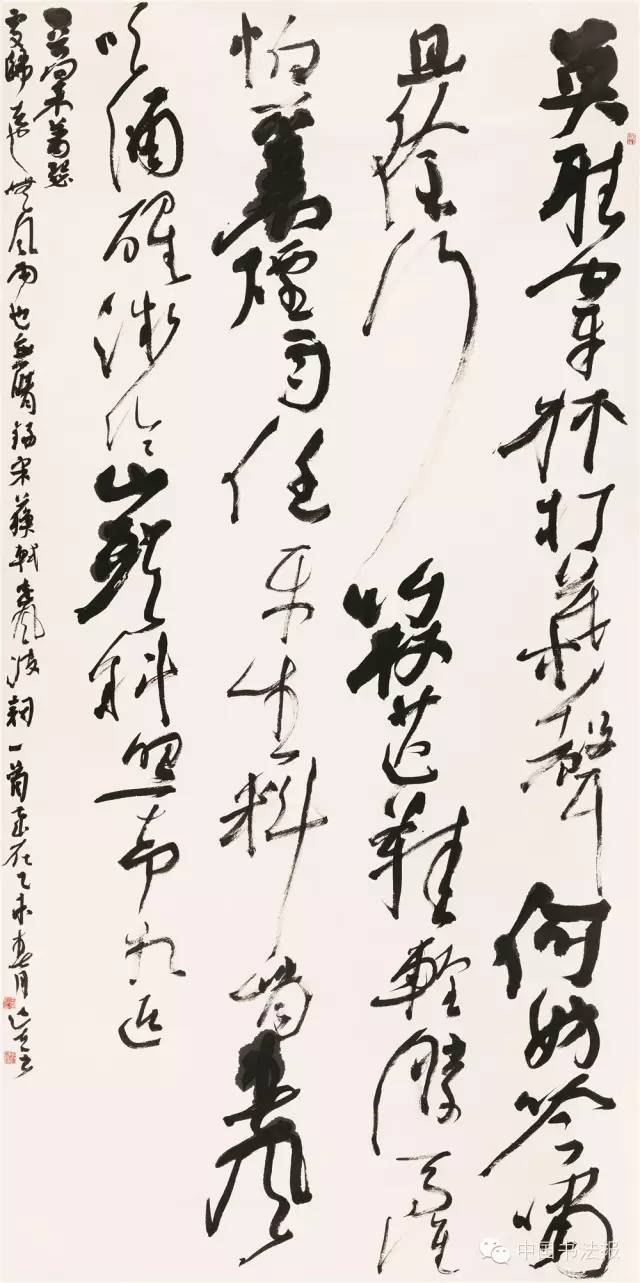 莫聽穿林打葉聲何妨吟嘯
且徐行竹杖芒鞋輕勝馬誰
怕一蓑煙雨任平生料峭春風
吹酒醒微冷山頭斜照却相迎
回首向來蕭瑟
處歸去也無風雨也無晴錄宋蘇軾定風波詞一首歲在乙未春月
中国书法报